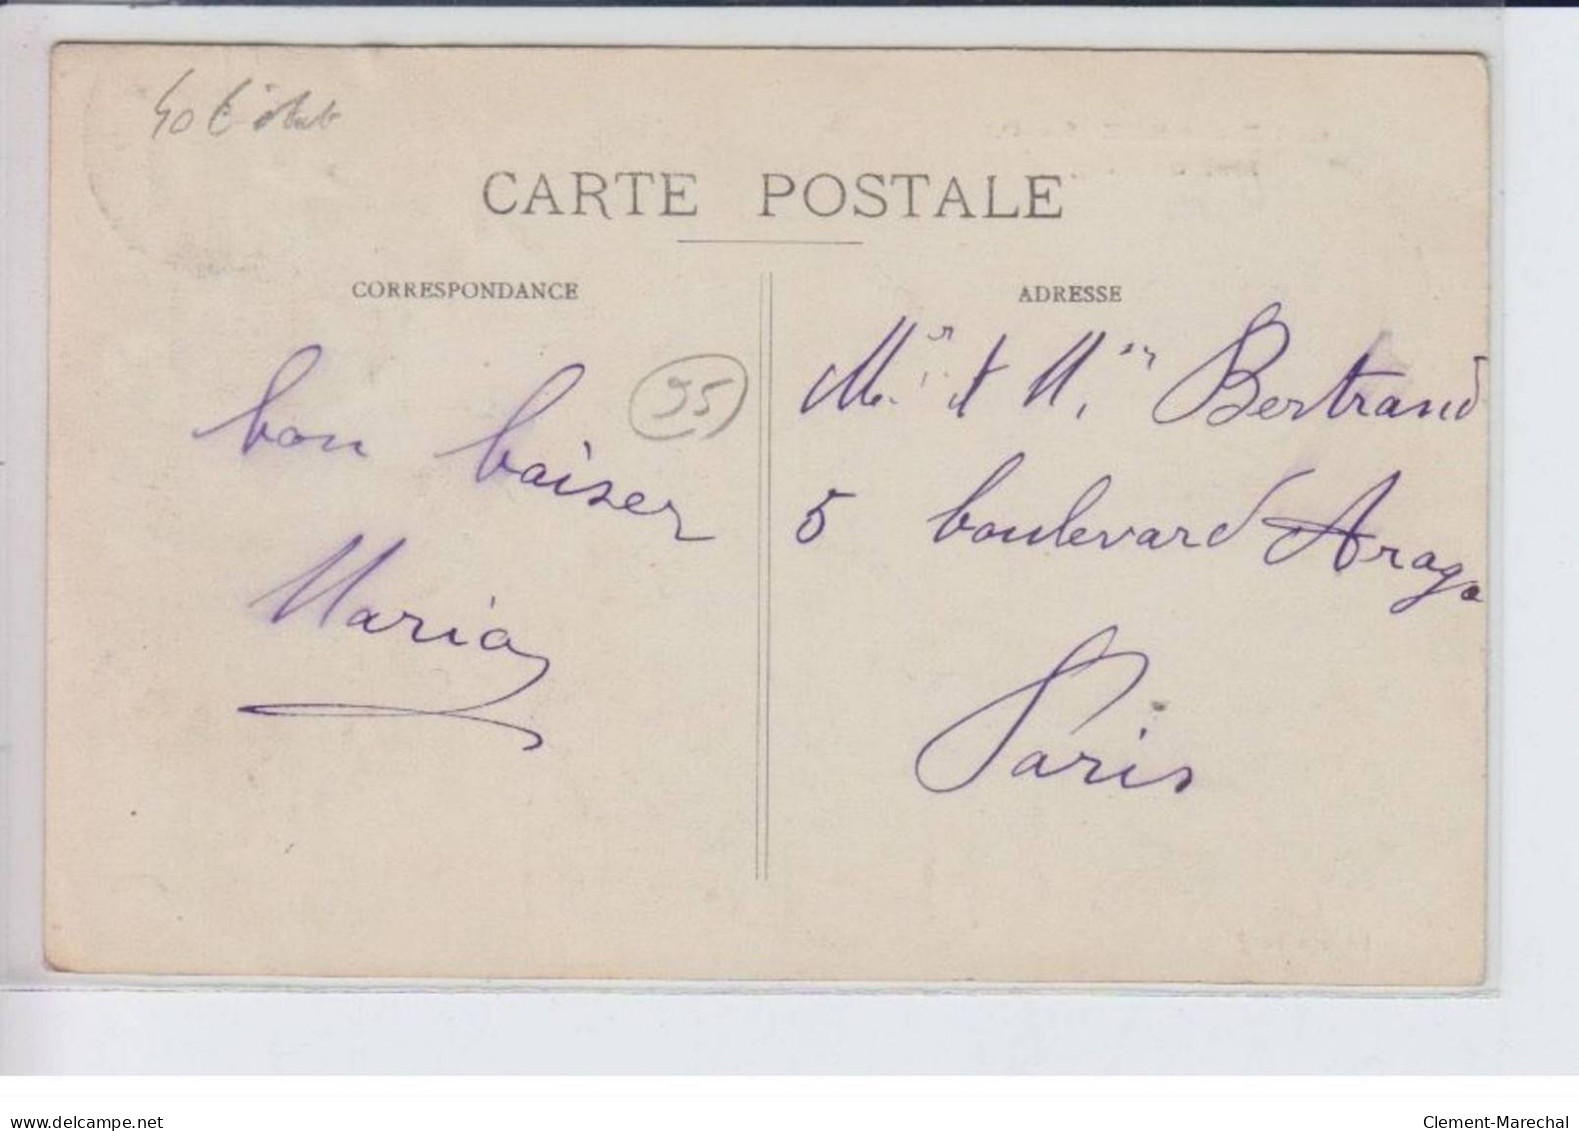 CARTE POSTALE
CORRESPONDANCE
ADRESSE
bon baiser
Maria
95
Mr et Mme Bertrand
5 boulevard Arago
Paris
www.delcampe.net
Clement-Marechal